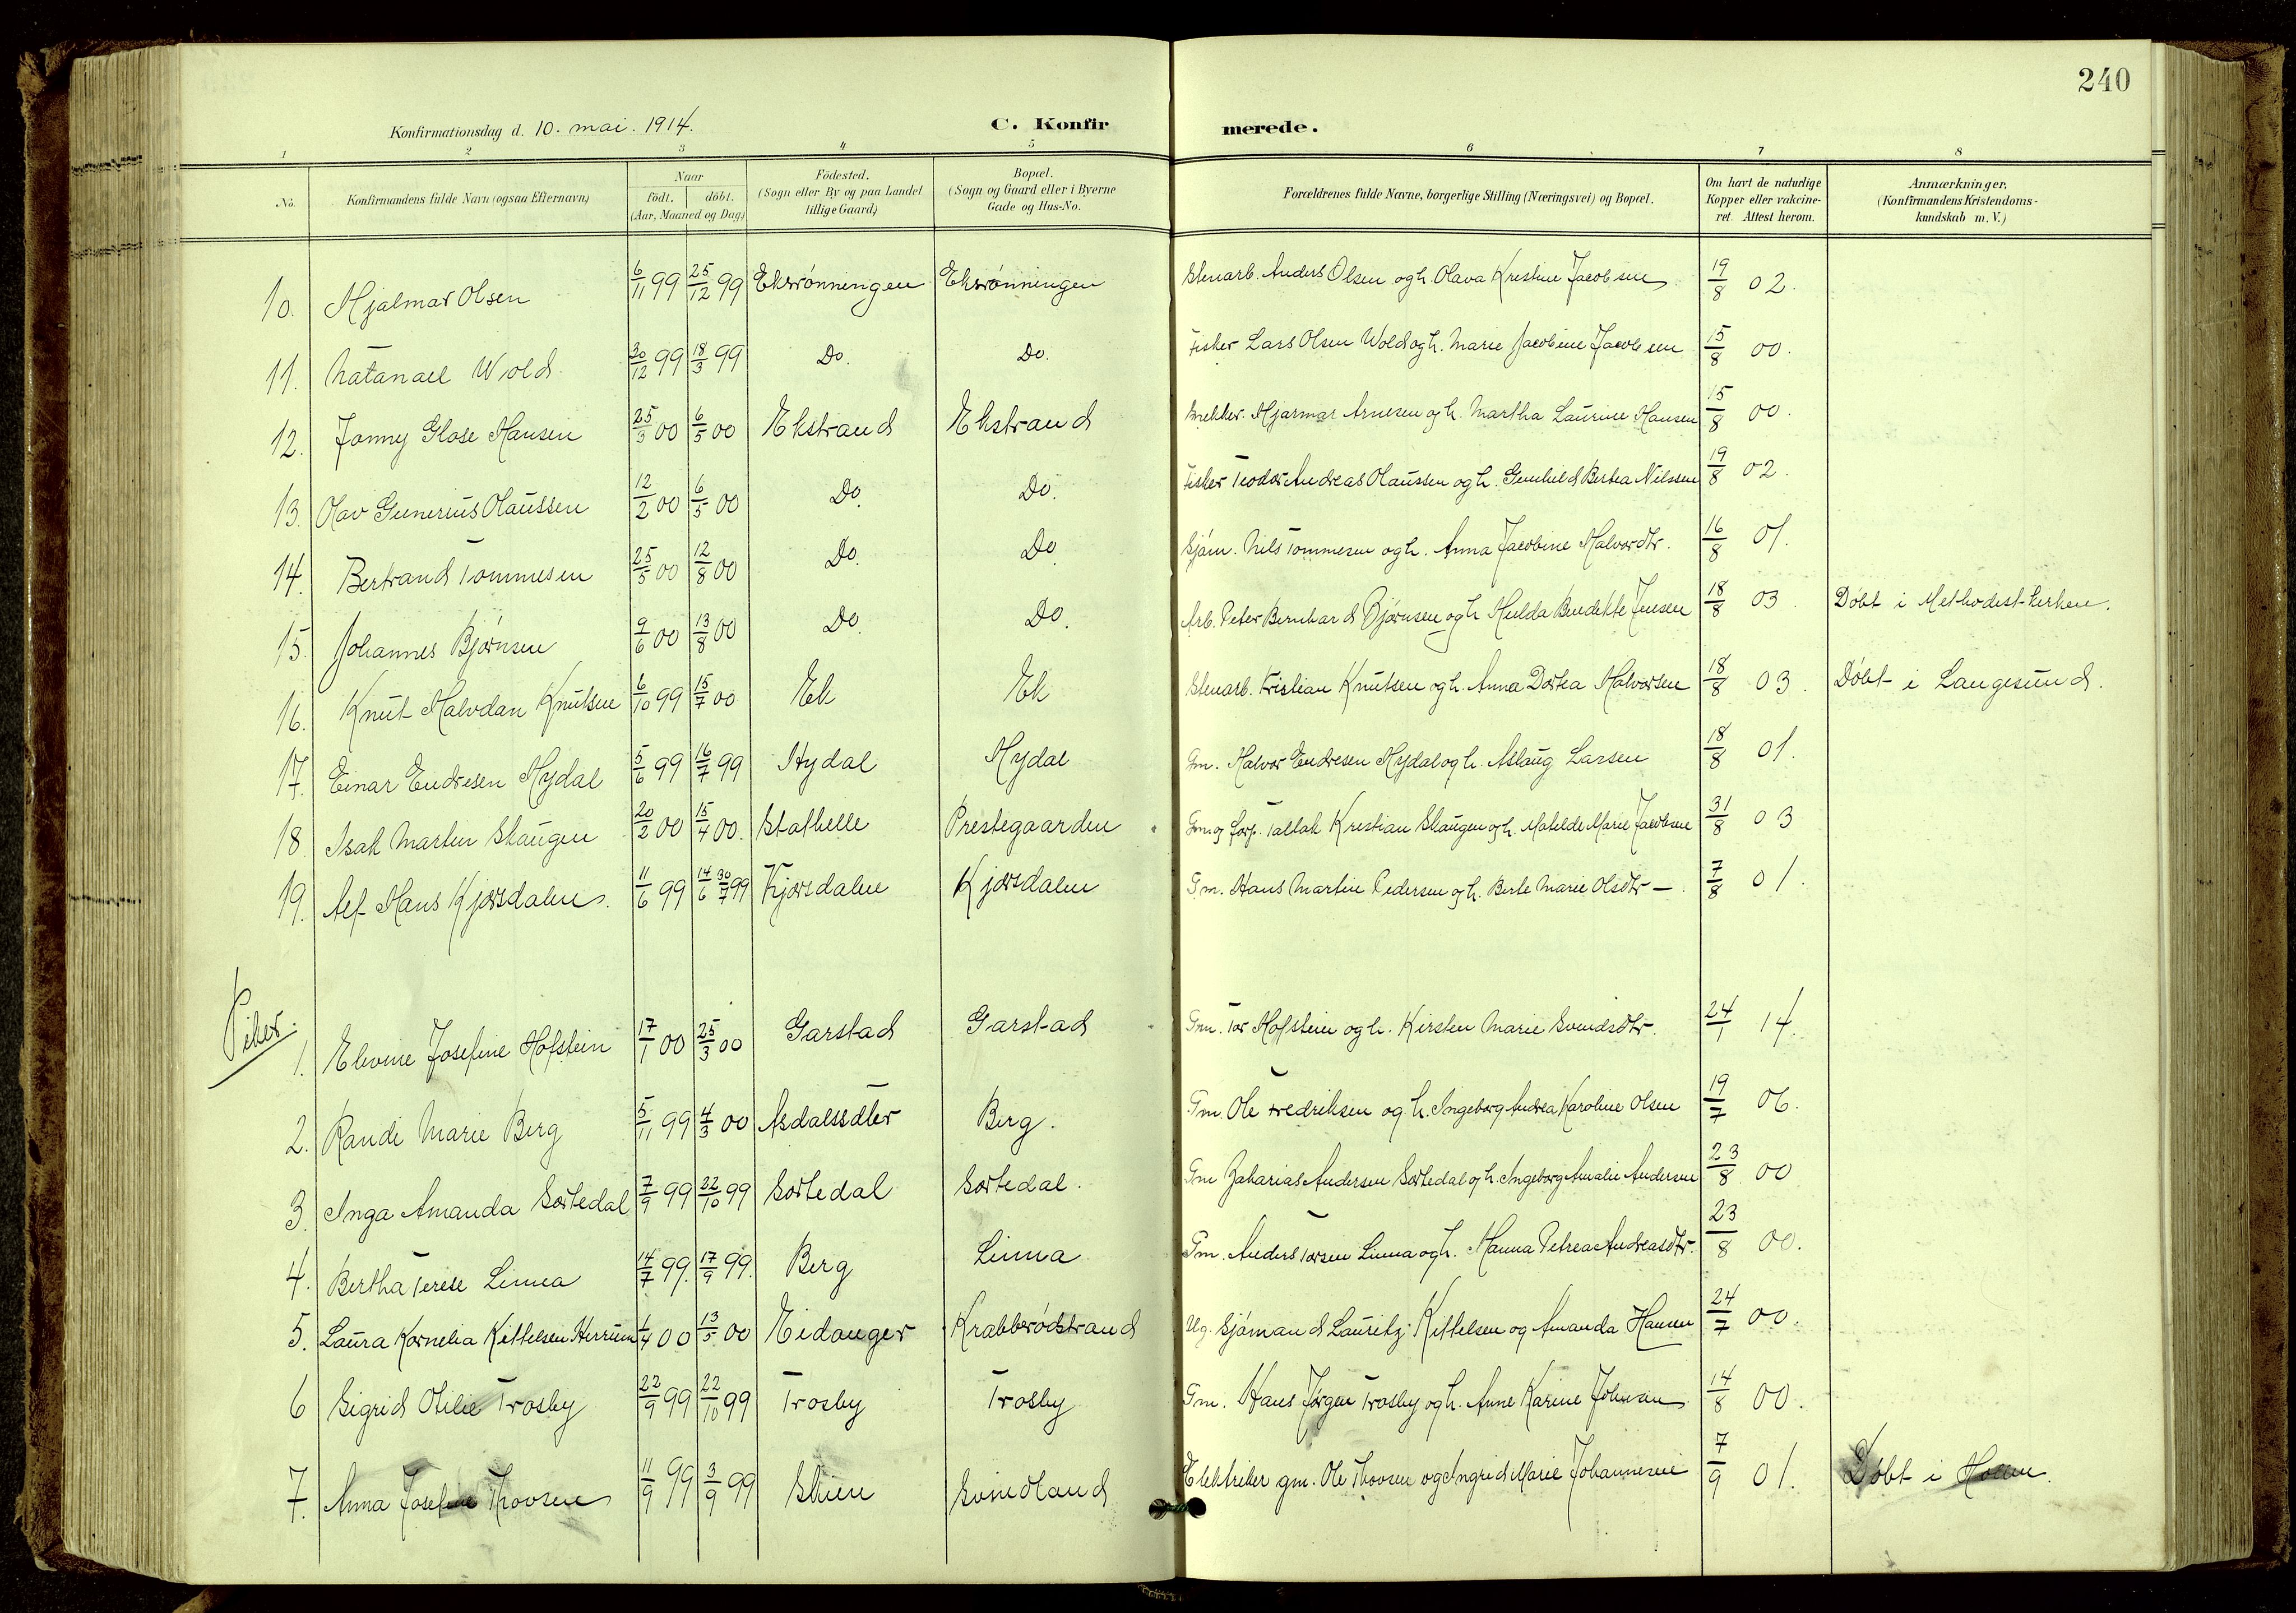 240
Konfirmationsdag d. 10. mai. 1914.
C. Konfirmerede.
1 2 3 4 5 6 7 8
No. Konfirmandens fulde Navn (ogsaa Efternavn) Naar født. døbt. (Aar, Maaned og Dag) Fødested. (Sogn eller By og paa Landet tillige Gaard) Bopæl. (Sogn og Gaard eller i Byerne Gade og Hus-No. Forældrenes fulde Navne, borgerlige Stilling (Næringsvei) og Bopæl. Om havt de naturlige Kopper eller vakcineret. Attest herom. Anmærkninger. (Konfirmandens Kristendomskundskab m. V.)
10. Hjalmar Olsen 6/11 99 25/12 99 Ekrønningen Ekrønningen Stenarb. Anders Olsen og h. Olava Kristine Jacobsen 19/8 02.
11. Natanael Wold 30/12 99 18/3 99 Do. Do. Fisker Lars Olsen Wold og h. Marie Jacobine Jacobsen 15/8 00.
12. Jonny Glose Hansen 25/3 00 6/5 00 Ekstrand Ekstrand Hjarmar Arnesen og h. Martha Laurine Hansen 15/8 00.
13. Olav Gunerius Olaussen 12/2 00 6/5 00 Do. Do. Fisker Teodor Andreas Olaussen og h. Gunhild Bertea Nilssen 19/8 02.
14. Bertrand Tommesen 25/5 00 12/8 00 Do. Do. Sjøm. Nils Tommesen og h. Anna Jacobine Halvordtr. 16/8 01.
15. Johannes Bjørnsen 9/6 00 13/8 00 Do. Do. Arb. Peter Bernhard Bjørnsen og h Hulda Bendikte Jensen 18/8 03. Døbt i Methodist-kirken.
16. Knut Halvdan Knutsen 6/10 99 15/7 00 Ek Ek Stenarb. Kristian Knutsen og h. Anna Dortea Halvorsen 18/8 03. Døbt i Langesund.
17. Einar Endresen Hydal 5/6 99 16/7 99 Hydal Hydal Gm. Halvor Endresen Hydal og h. Aslaug Larsen 18/8 01.
18. Isak Martin Skaugen 20/2 00 15/4 00. Stathelle Prestegaarden Gm. og forp. Tallak Kristian Skaugen og h. Matilde Marie Jacobsen 31/8 03
19. Alf Hans Kjørsdalen. 11/6 99 14/6 30/7 99 Kjørsdalen Kjørsdalen Gm. Hans Martin Pedersen og h. Berte Marie Olsdtr — . 7/8 01.
Piker.
1. Elevine Josefine Hofstein 17/1 00 25/3 00 Garstad Garstad Gm. Tor Hofstein og h. Kirsten Marie Svendsdtr. 24/1 14.
2. Randi Marie Berg 5/11 99 4/3 00 Asdalssdter Berg. Gm. Ole Fredriksen og h. Ingeborg Andrea Karoline Olsen 19/7 06.
3. Inga Amanda Sortedal 7/9 99 22/10 99 Sortedal Sortedal. Gm Zakarias Andersen Sortedal og h. Ingeborg Amalie Andersen 23/8 00
4. Bertha Terese Linna 14/7 99. 17/9 99. Berg Linna Gm. Anders Torsen Linna og h. Hanna Petrea Andreasdtr. 23/8 00.
5. Laura Kornelia Kittelsen Herrum 1/4 00 13/5 00 Eidanger Krabberødstrand Ug. Sjømand Lauritz Kittelsen og Amanda Hansen 24/7 00.
6 Sigrid Otilie Trosby 22/9 99 22/10 99 Trosby Trosby Gm. Hans Jørgen Trosby og h. Anne Karine Johnsen 14/8 00.
7. Anna Josefine Thovsen 11/9 99 3/9 99 Skien Svindland Elektriker gm. Ole Thovsen og Ingrid Marie Johannesen 7/9 01. Døbt i Hollen.